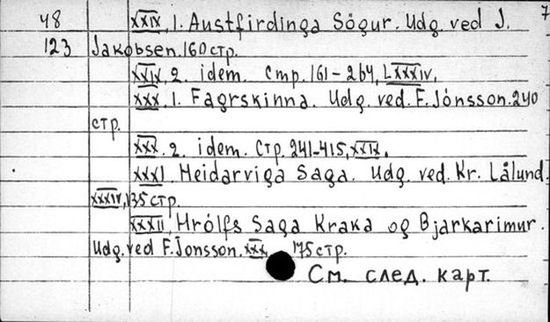 7
48 XXIX, 1. Austfirdinga Sögur. Udg. ved J.
123 Jakobsen. 160 стр.
XXIX, 2. idem. Стр. 161-264, LXXXIV.
XXX, 1. Fagrskinna. Udg. ved. F. Jónsson. 240
стр.
XXX. 2. idem. Стр. 241-415, XXIX.
XXXI. Heidarviga Saga. Udg. ved. Kr. Lålund.
XXXIV, 135 стр.
XXXII, Hrólfs Saga Kraka og Bjarkarimur.
Udg. ved F. Jonsson. XXX 175 стр.
См. след. карт.